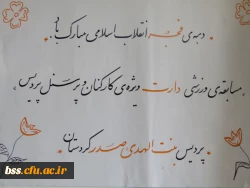 دهه‌ی فجر انقلاب اسلامی مبارک باد.
مسابقه‌ی ورزشی دارت ویژه‌ی کارکنان و پرسنل پردیس
پردیس بنت الهدی صدر کردستان
bss.cfu.ac.ir